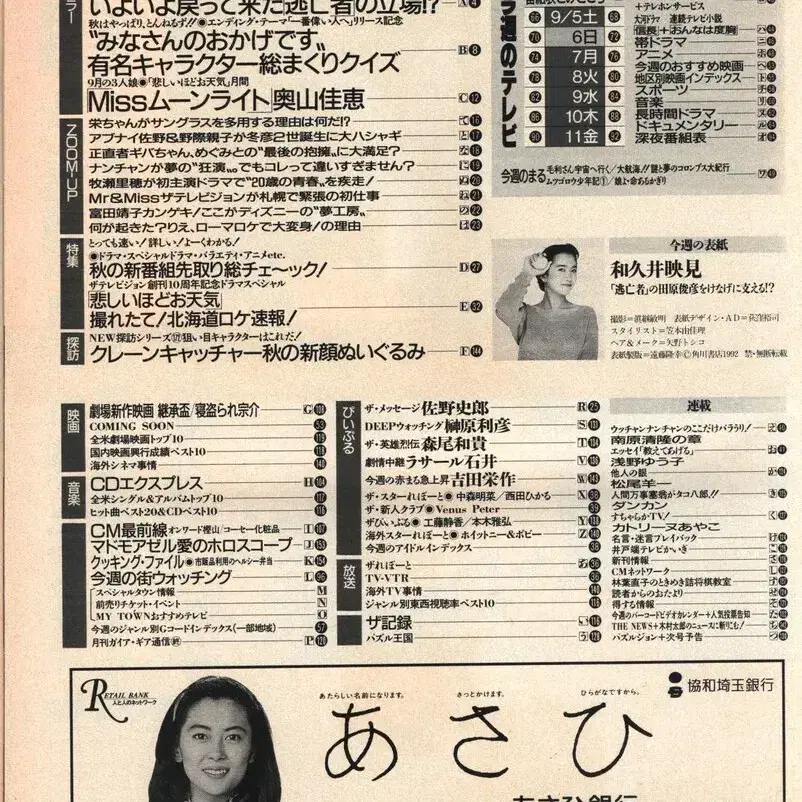 いよいよ戻って来た逃亡者の立場!?
秋はやっぱり、とんねるず!!●エンディング・テーマ「一番偉い人へ」リリース記念
“みなさんのおかげです”
有名キャラクター総まくりクイズ
9月の3人娘●「悲しいほどお天気」月間
[Missムーンライト]奥山佳恵
ZOOM・UP
栄ちゃんがサングラスを多用する理由は何だ!?
アブナイ佐野&野際親子が冬彦2世誕生に大ハシャギ
正直者ギバちゃん、めぐみとの“最後の抱擁”に大満足?
ナンチャンが夢の“狂演”。でもコレって違いすぎません?
牧瀬里穂が初主演ドラマで“20歳の青春”を疾走!
Mr&Missザテレビジョンが札幌で緊張の初仕事
富田靖子カンゲキ!ここがディズニーの“夢工房”
何が起きた?りえ、ローマロケで大変身!の理由
特集
とっても速い!詳しい!よーくわかる!
●ドラマ・スペシャルドラマ・バラエティ・アニメetc.
秋の新番組先取り総チェ〜ック!
ザテレビジョン創刊10周年記念ドラマスペシャル
[悲しいほどお天気]
撮れたて!北海道ロケ速報!
探訪
NEW探訪シリーズ 狙い目キャラクターはこれだ!
クレーンキャッチャー秋の新顔ぬいぐるみ
今週のテレビ
9/5土
6日
7月
8火
9水
10木
11金
+テレホンサービス
大河ドラマ 連続テレビ小説
「信長」+「おんなは度胸」
帯ドラマ
アニメ
今週のおすすめ映画
地区別映画インデックス
スポーツ
音楽
長時間ドラマ
ドキュメンタリー
深夜番組表
今週のまる 毛利さん宇宙へ行く/大航海!!謎と夢のコロンブス大紀行
ムツゴロウ少年記①/娘よ・命あるかぎり
今週の表紙
和久井映見
「逃亡者」の田原俊彦をけなげに支える!?
表紙デザイン・AD=荻窪裕司
スタイリスト=笠本由佳理
ヘア&メーク=矢野トシコ
表紙製版=遠藤隆幸©角川書店1992 禁・無断転載
映画
劇場新作映画 継承盃/寝盗られ宗介
COMING SOON
全米劇場映画トップ10
国内映画興行成績ベスト10
海外シネマ事情
音楽
CDエクスプレス
全米シングル&アルバムトップ10
ヒット曲ベスト20&CDベスト10
CM最前線 オンワード樫山/コーセー化粧品
マドモアゼル愛のホロスコープ
クッキング・ファイル●市販品利用のヘルシー弁当
今週の街ウォッチング
スペシャルタウン情報
前売りチケット・イベント
MY TOWNおすすめテレビ
今週のジャンル別Gコードインデックス(一部地域)
月刊ガイア・ギア通信
ぴいぷる
ザ・メッセージ 佐野史郎
DEEPウォッチング 榊原利彦
ザ・英雄烈伝 森尾和貴
劇情中継 ラサール石井
今週の赤まる急上昇 吉田栄作
ザ・スターれぽーと●中森明菜/西田ひかる
ザ・新人クラブ●Venus Peter
ザぴぃぷる●工藤静香/本木雅弘
海外スターれぽーと●ホイットニー&ボビー
今週のアイドルインデックス
放送
ザれぽーと
TV-VTR
海外TV事情
ジャンル別東西視聴率ベスト10
ザ記録
パズル王国
連載
ウッチャンナンチャンのここだけバラうり!
南原清隆の章
エッセイ「教えてあげる」
浅野ゆう子
他人の眼
松尾羊一
人間万事塞翁がタコ八郎!!
ダンカン
すちゃらかTV!
カトリーヌあやこ
名言・迷言プレイバック
井戸端テレビかいぎ
新刊情報
CMネットワーク
林葉直子のときめき詰将棋教室
読者からのおたより
得する情報
今週のバーコードビデオカレンダー+人気投票告知
THE NEWS+木村太郎のニュースに斬りこむ!
パズルジョン+次号予告
RETAIL BANK
人と人のネットワーク
あたらしい名前になります。
さっとかけます。
ひらがなですから。
あさひ
協和埼玉銀行
あさひ銀行